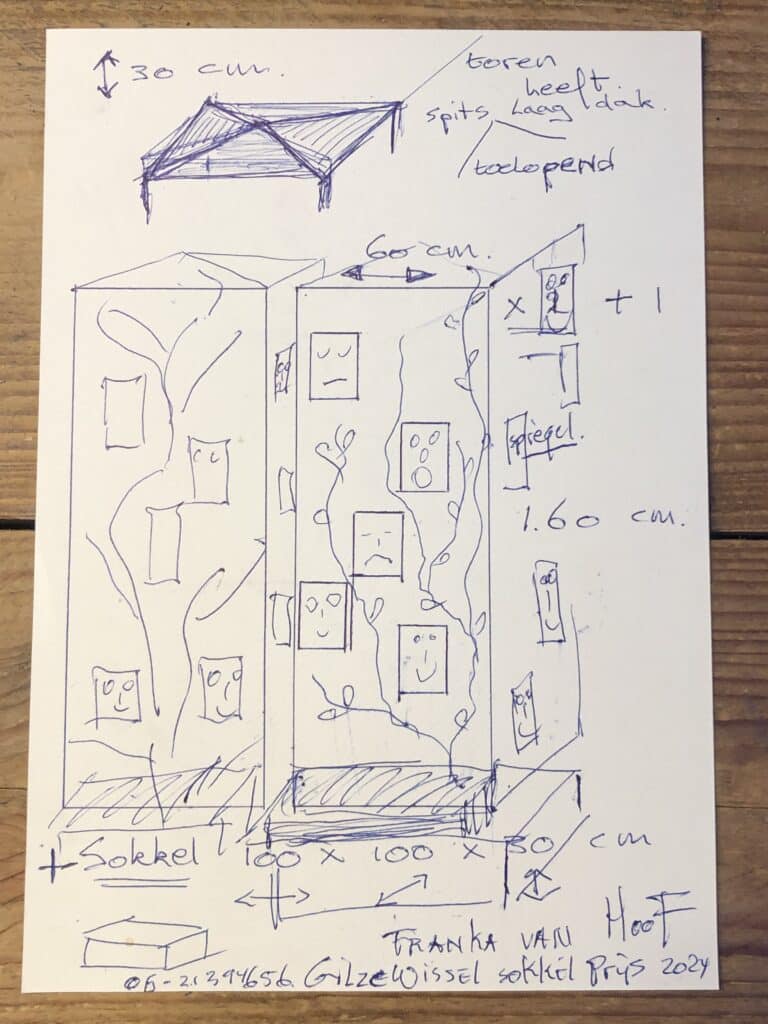 30 cm.
toren
heeft
spits laag dak.
toelopend
60 cm.
x + 1
spiegel.
1.60 cm.
+ Sokkel 100 x 100 x 30 cm
FRANKA VAN HOOF
06-21394656. Gilze Wissel sokkel Prijs 2024